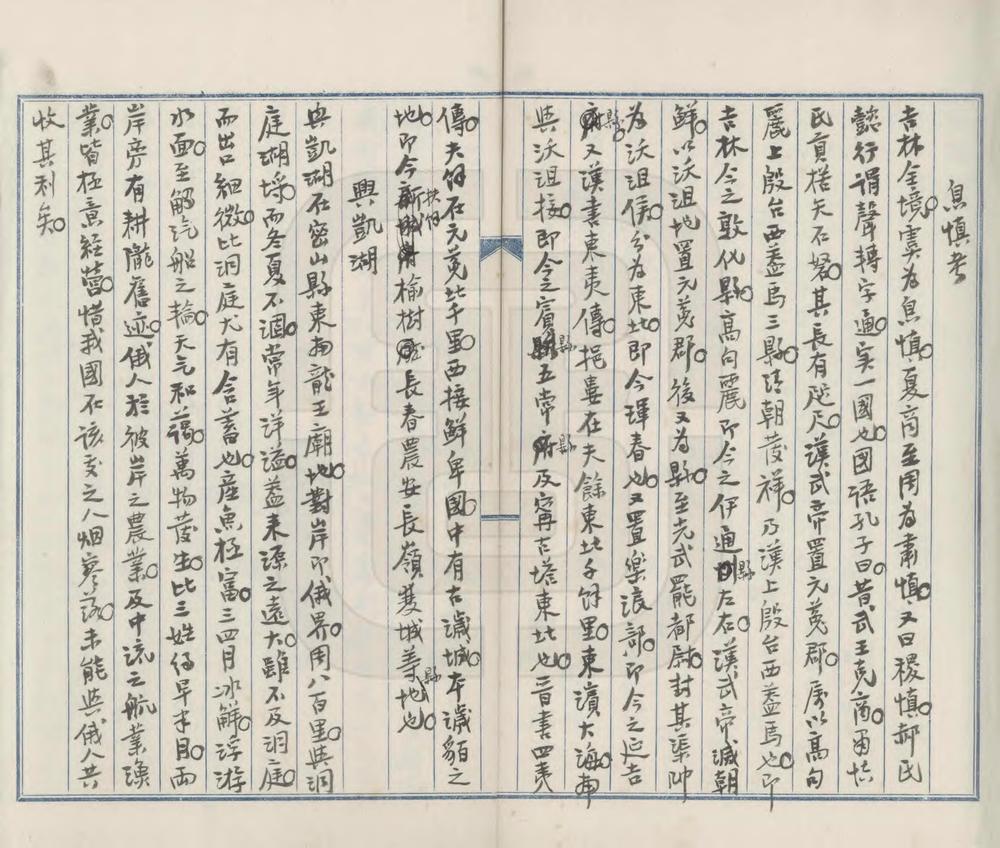 息慎考
吉林全境虞為息慎夏商至周為肅慎又曰稷慎郝氏
懿行謂聲轉字通实一國也國语孔子曰昔武王克商肅慎
氏貢楛矢石砮其長有咫尺漢武帝置元菟郡属以高句
麗上殷台西蓋馬三縣清朝發祥乃漢上殷台西蓋馬也即
吉林今之敦化縣高句麗即今之伊通縣左右漢武帝滅朝
鮮以沃沮地置元菟郡後又為縣至光武罷都尉封其渠帅
為沃沮侯分為東北即今琿春也又置樂浪部即今之延吉
縣又漢書東夷傳挹婁在夫餘東北千餘里東濱大海南
與沃沮接即今之賓縣五常縣及寗古塔東北也晉書四夷
傳夫餘在元菟北千里西接鮮卑國中有古濊城本濊貊之
地即今扶餘榆樹長春農安長嶺雙城等縣地也
興凱湖
興凱湖在密山縣東南龍王廟地對岸即俄界周八百里與洞
庭湖埒而冬夏不涸常年洋溢蓋来源之遠大雖不及洞庭
而出口細微比洞庭尤有含蓄也産魚極富三四月冰解浮游
水面至觸汽船之輪天气和藹萬物發生比三姓约早半月而
岸旁有耕隴舊迹俄人於彼岸之農業及中流之航業漁
業皆極意經營惜我國不该交之人烟寥落未能與俄人共
收其利矣